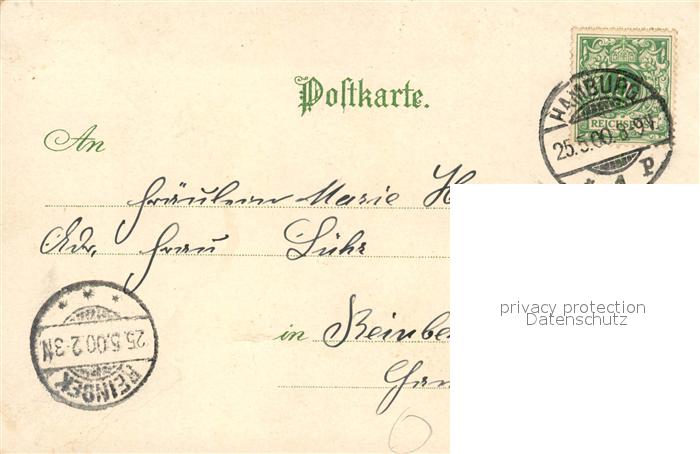 Postkarte.
HAMBURG
REICHSPOST
25.5.00. 8-9V.
* 1 P
An
Fräulein Marie H
Adr. Frau Lühr
privacy protection
Datenschutz
in Reinbe
25.5.00 2-3N
REINBEK